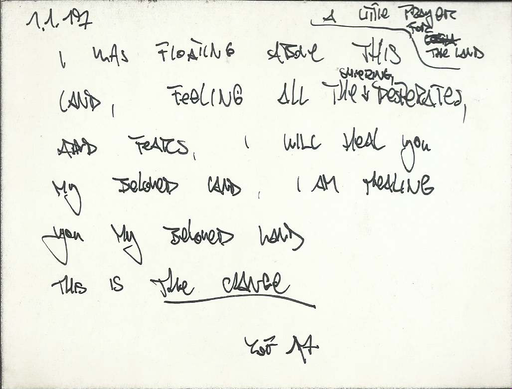 1.1.197
A LITTLE PRAYER
FOR
THE LAND
I WAS FLOATING ABOVE THIS
LAND, FEELING ALL THE SUFFERING, DESPERATES,
AND FEARS, I WILL HEAL you
My BELOVED LAND, I AM HEALING
you My BELOVED LAND
THIS IS The CHANGE